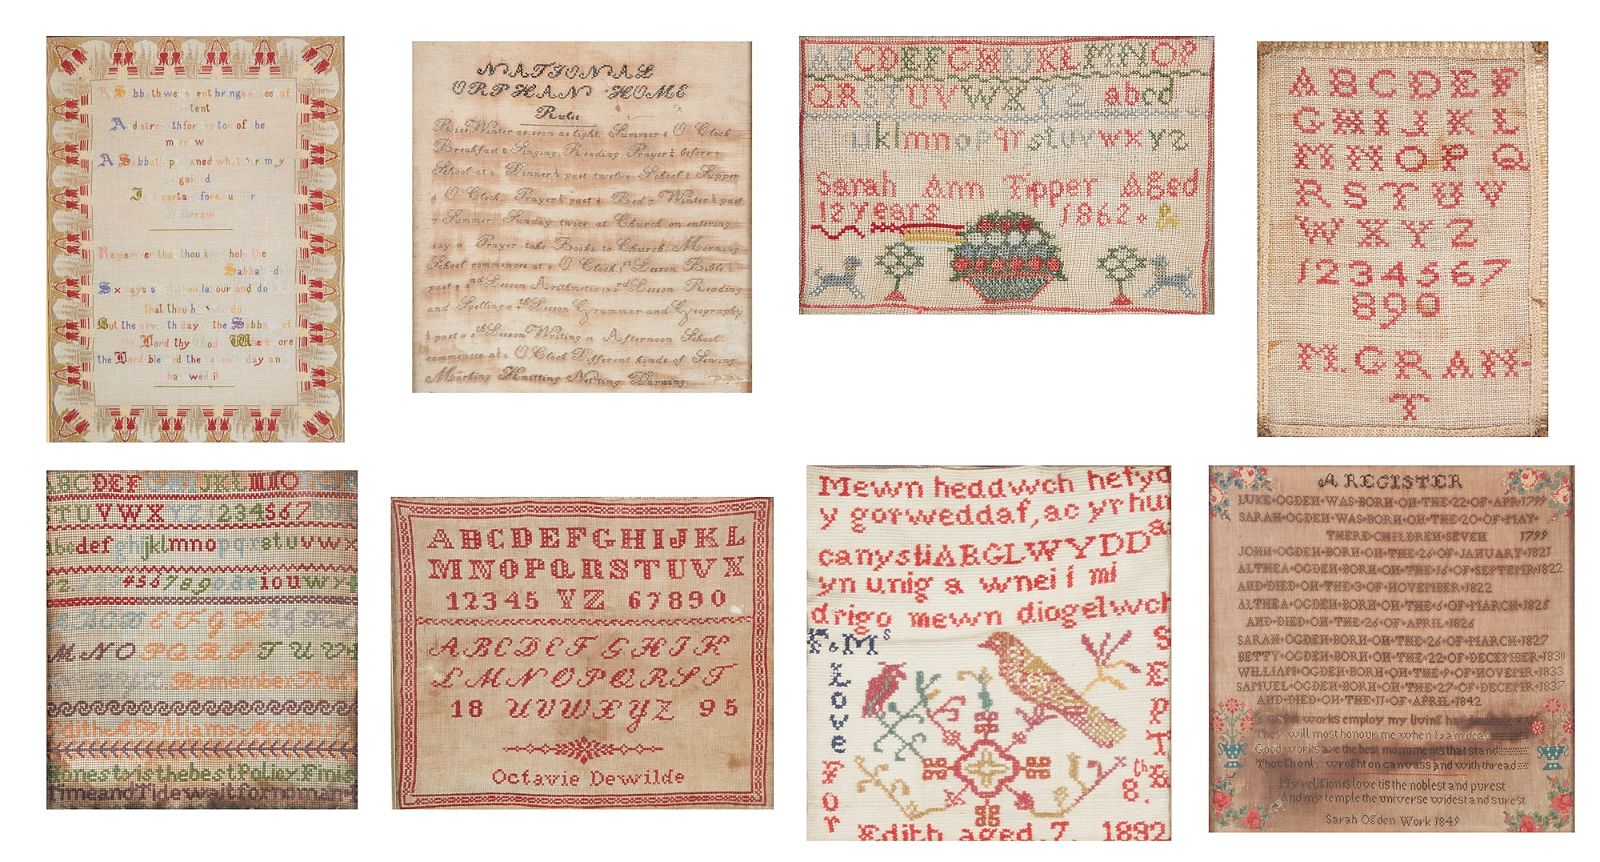 A Sabbath well spent brings a week of
content
And strength for the toil of the
morrow
A Sabbath profaned whate'er may
gained
Is a certain forerunner
of sorrow
Remember that thou keep holy the
Sabbath day
Six days shalt thou labour and do all
that thou h do
But the seventh day the Sabbath of
the Lord thy God Wherefore
the Lord blessed the seventh day and
hallowed it
NATIONAL
ORPHAN HOME
Rules
Rise Winter as soon as light Summer 6 O Clock
Breakfast 8 Singing Reading Prayer before 9
School at 9 Dinner past twelve School 2 Supper
6 O Clock Prayer past 6 Bed 7 Winter past
7 Summer Sunday twice at Church on entering
say a Prayer take Books to Church Morning
School commences at 9 O Clock 1st Lesson Bible
past 9 2nd Lesson Arithmetic 10 3rd Lesson Reading
and Spelling 4th Lesson Grammar and Geography
past 11 5th Lesson Writing Afternoon School
commences at 2 O Clock Different kinds of Sewing
Marking Knitting Netting Darning
ABCDEFGHIJKLMNOP
QRSTUVWXYZ abcd
ijklmnopqrstuvwxyz
Sarah Ann Tipper Aged
12 Years 1862 &
ABCDEF
GHIJKL
MNOPQ
RSTUV
WXYZ
1234567
890
M.GRAN-
T
ABCDEFGHIJKLMNO
STUVWXYZ123456789
abcdefghijklmnopqrstuvwx
yz 123456789 aeiouwy
ABCDEFGHIJK
MNOPQRSTUV
XYZ Remember Truth
Faith A Williams Modbury
Honesty is the best Policy Finis
Time and Tide wait for no man
ABCDEFGHIJKL
MNOPQRSTUVX
12345 YZ 67890
ABCDEFGHIJK
LMNOPQRST
18 UVWXYZ 95
Octavie Dewilde
Mewn heddwch hefyd
y gorweddaf, ac yr hu
canys ti ARGLWYDD a
yn unig a wnei i mi
drigo mewn diogelwch
F.Ms
Love
For
SEPT
8th
Edith aged 7. 1892
A REGISTER
LUKE OGDEN WAS BORN ON THE 22 OF APR 1799
SARAH OGDEN WAS BORN ON THE 20 OF MAY
THERE CHILDREN SEVEN 1799
JOHN OGDEN BORN ON THE 26 OF JANUARY 1821
ALTHEA OGDEN BORN ON THE 16 OF SEPTEMR 1822
AND DIED ON THE 3 OF NOVEMBER 1822
ALTHEA OGDEN BORN ON THE 6 OF MARCH 1825
AND DIED ON THE 26 OF APRIL 1826
SARAH OGDEN BORN ON THE 26 OF MARCH 1827
BETTY OGDEN BORN ON THE 22 OF DECEMBER 1830
WILLIAM OGDEN BORN ON THE 9 OF NOVEMR 1833
SAMUEL OGDEN BORN ON THE 27 OF DECEMR 1837
AND DIED ON THE 11 OF APRIL 1842
works employ my living
They will most honour me when I am dead
Good works are the best monuments that stand
Though only wrought on canvass and with thread
My religion is love tis the noblest and purest
And my temple the universe widest and surest
Sarah Ogden Work 1849